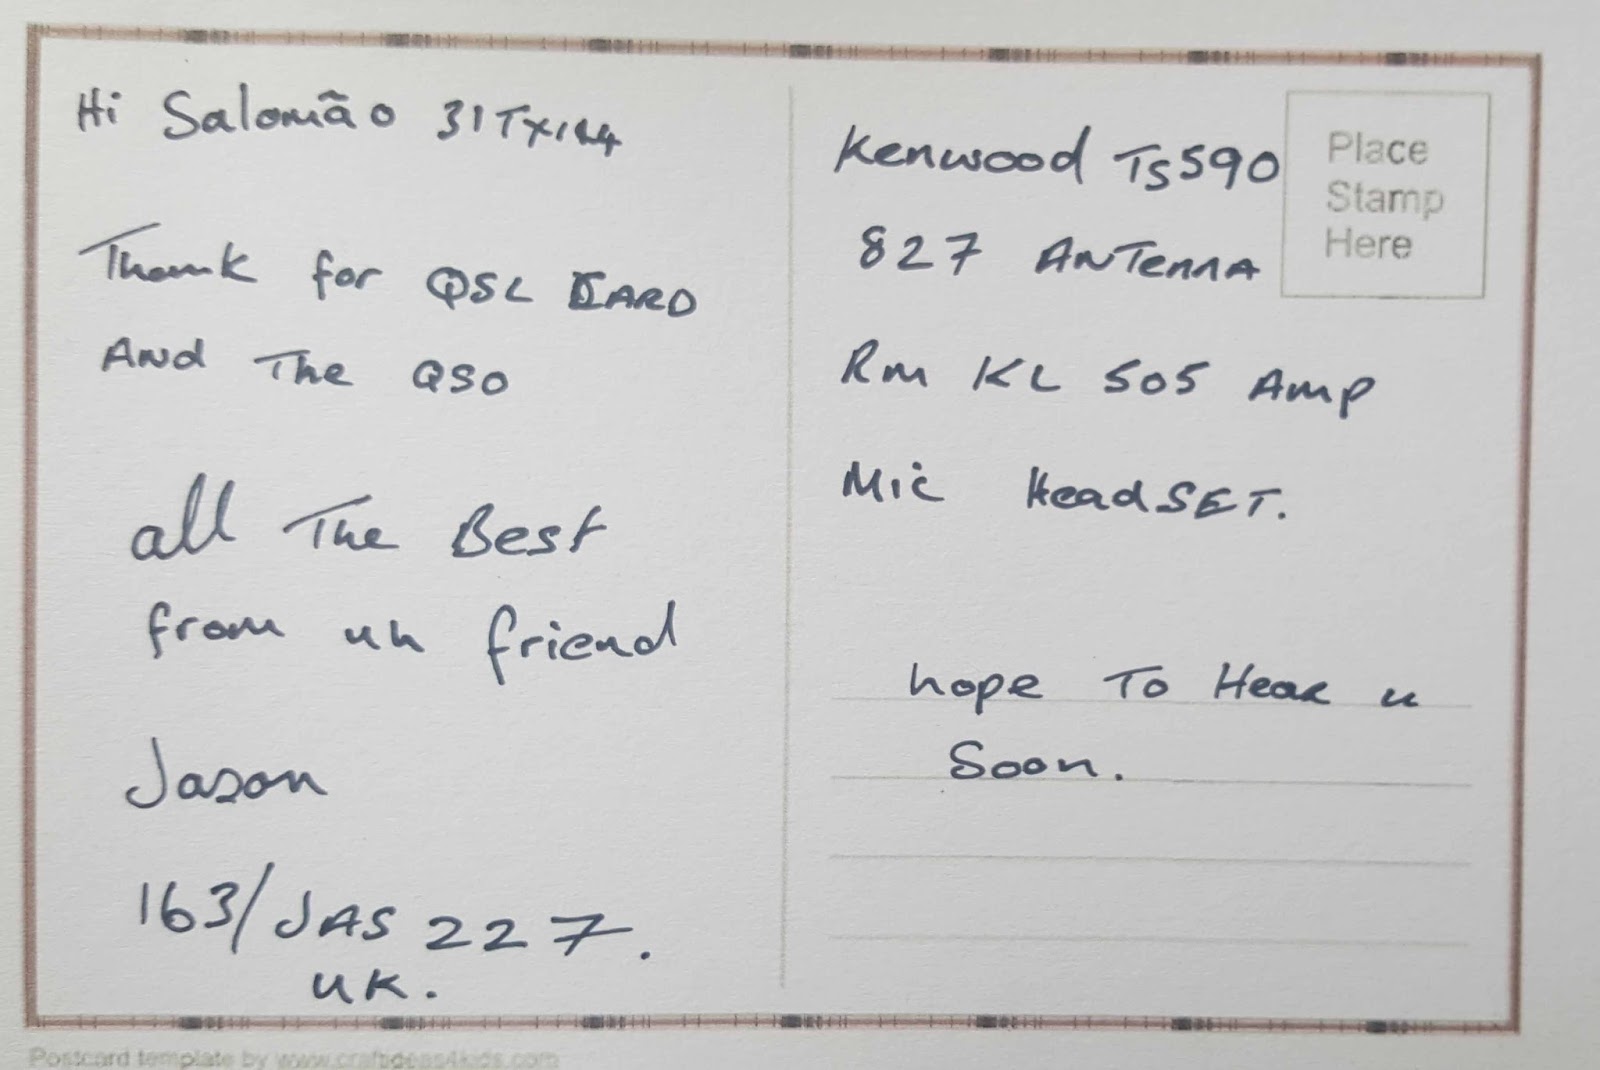 Hi Salomão 31TX144
Thank for QSL CARD
And The QSO
all The Best
from uk friend
Jason
163/JAS 227.
UK.
Kenwood TS590
827 ANTenna
Rm KL 505 Amp
Mic HeadSET.
hope To Hear u
Soon.
Place
Stamp
Here
Postcard template by www.craftideas4kids.com